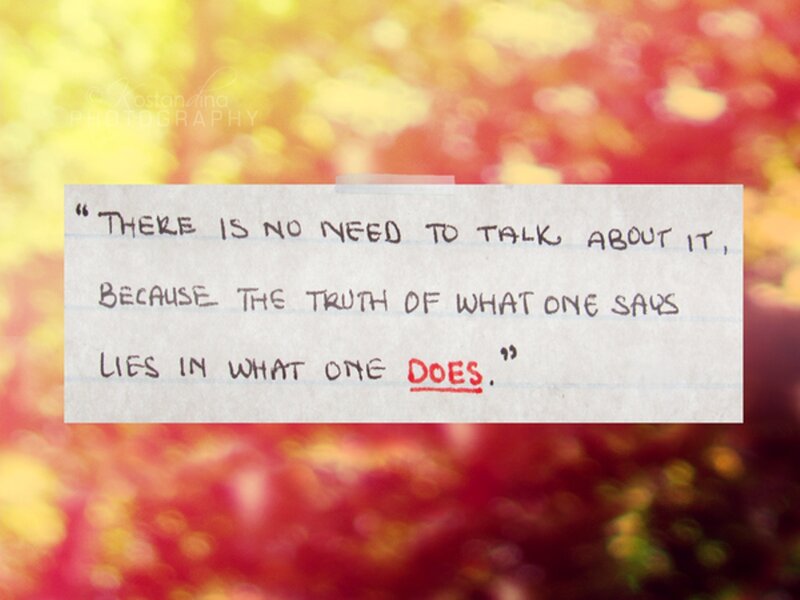 Kostandina
PHOTOGRAPHY
“THERE IS NO NEED TO TALK ABOUT IT,
BECAUSE THE TRUTH OF WHAT ONE SAYS
LIES IN WHAT ONE DOES.”